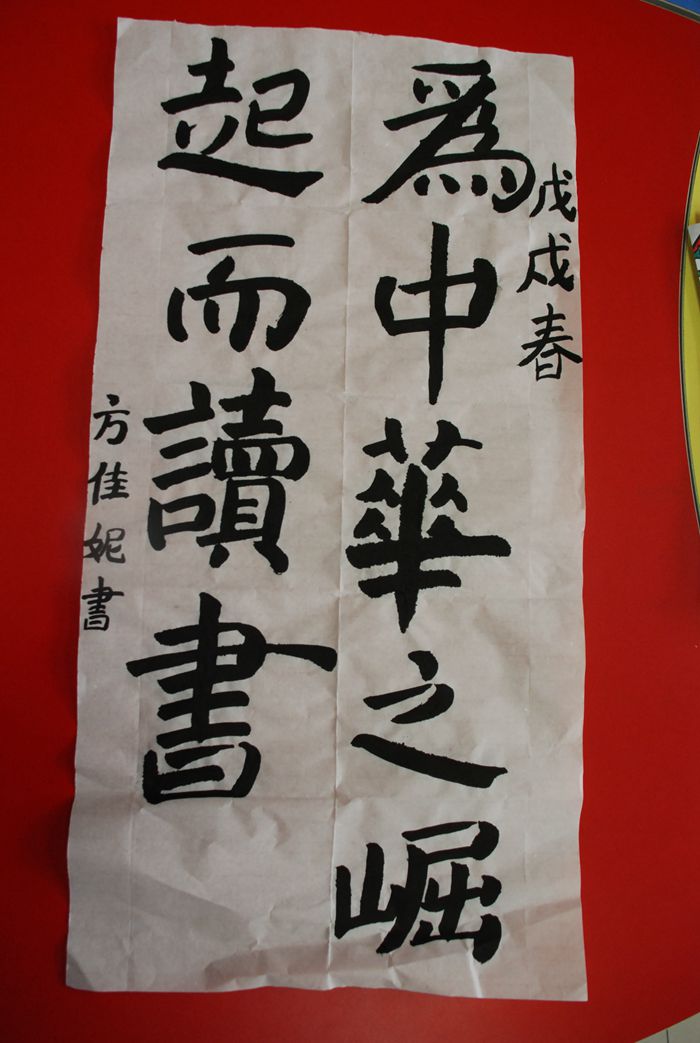 戊戌春
為中華之崛
起而讀書
方佳妮書